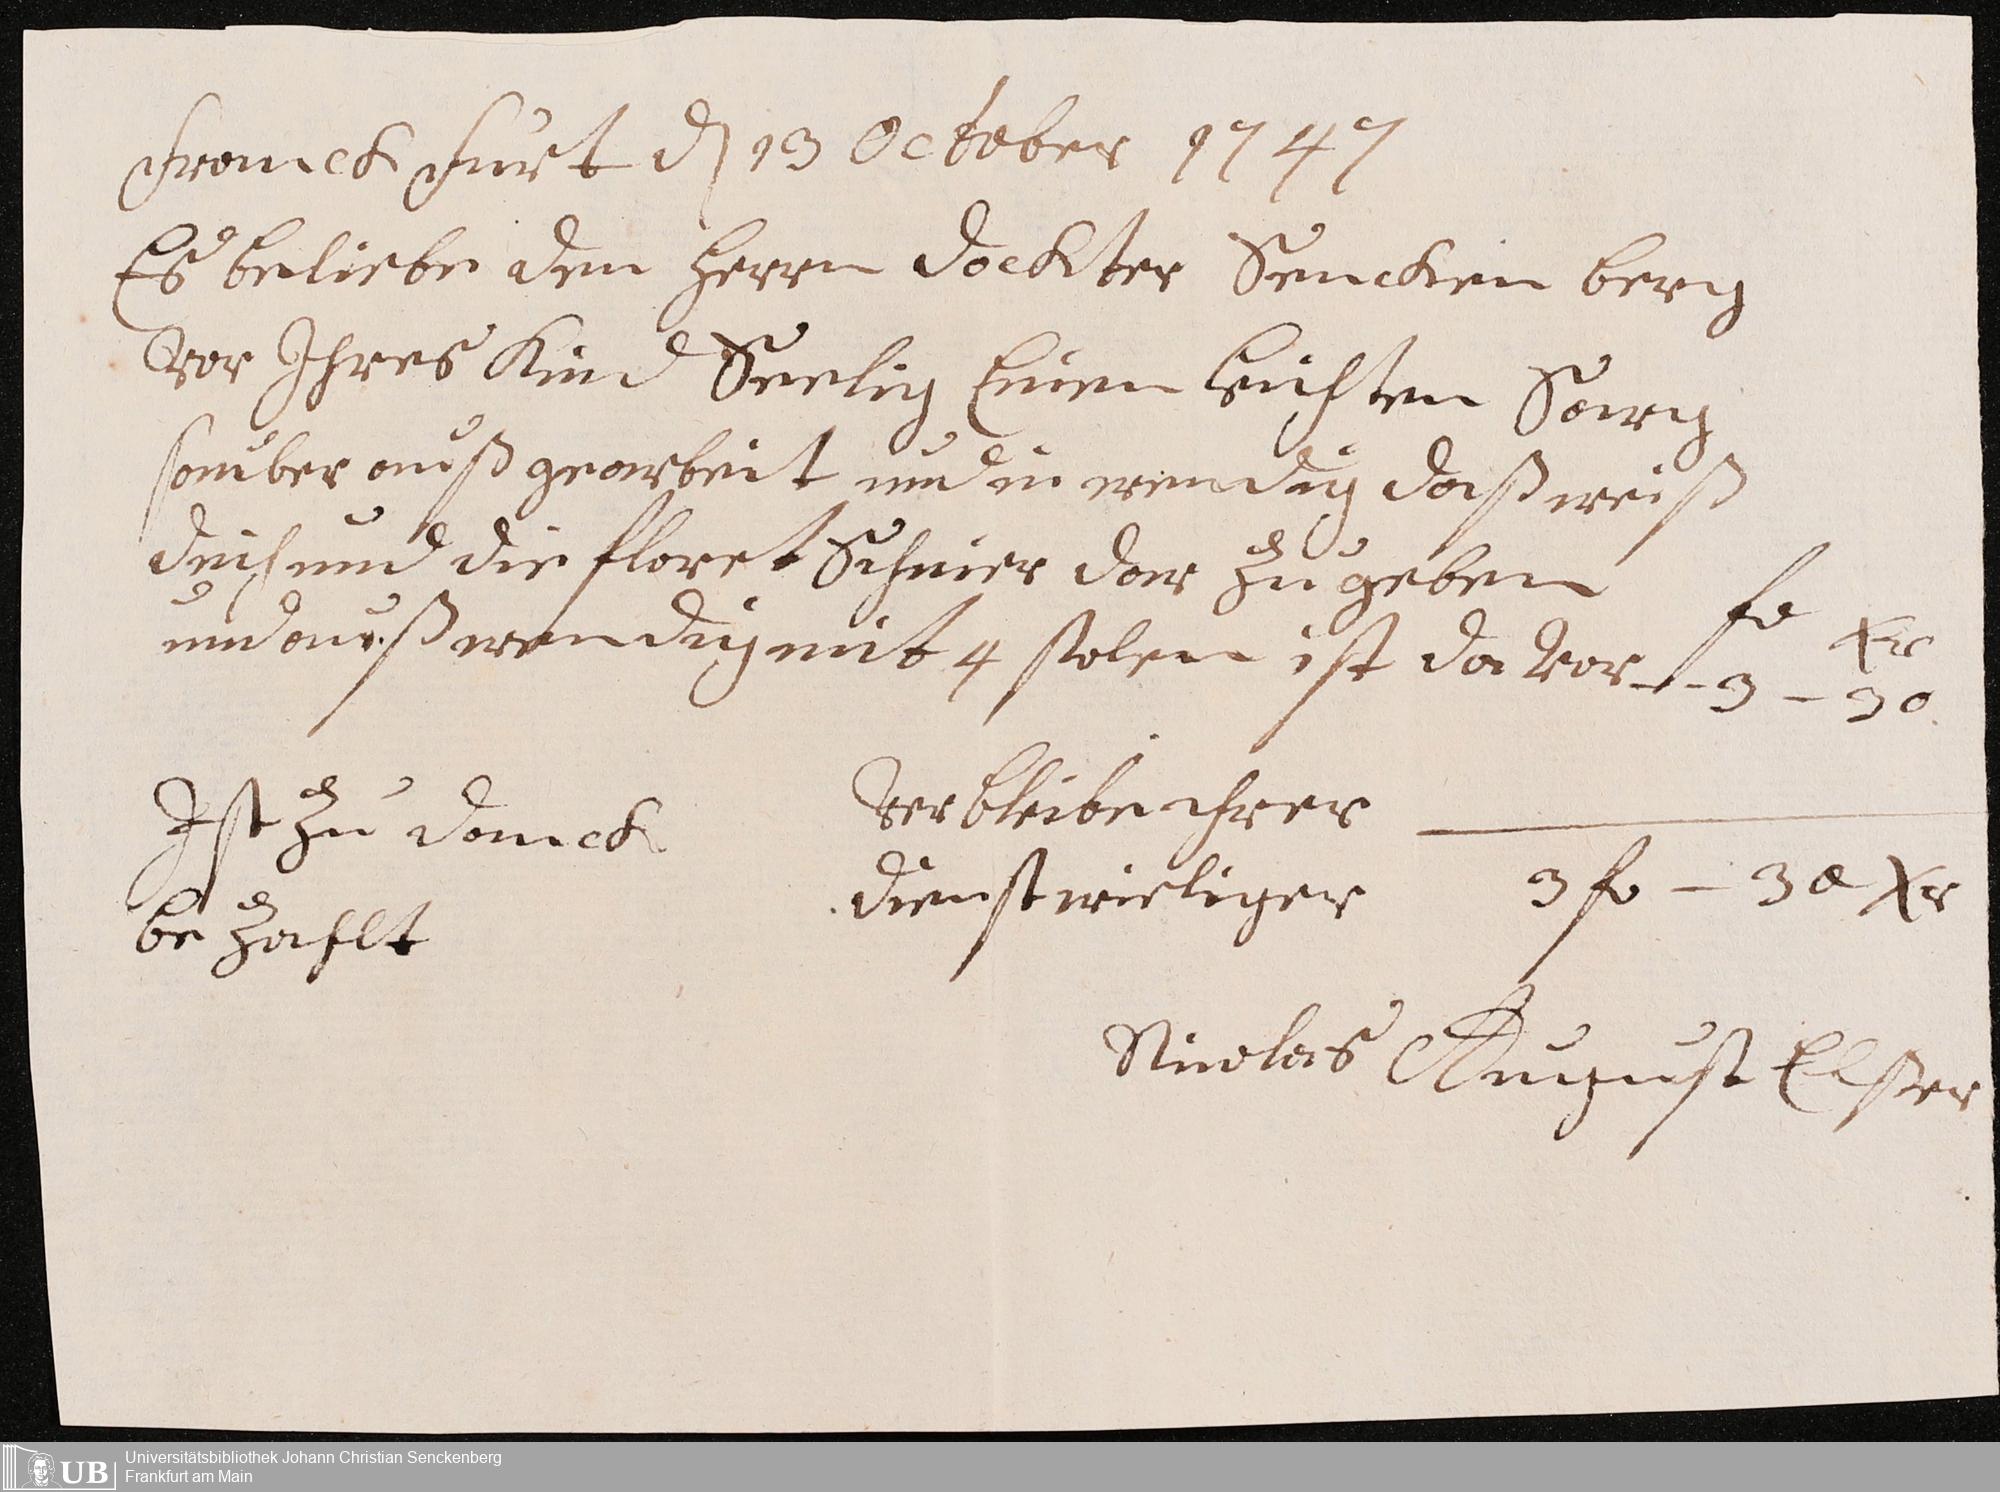 Franckfurt d 13 October 1747
Es beliebe den Herrn Dockter Sencken berg
vor Ihres Kind Seelig Einen leichten Sarg
sauber auß gearbeit und in wendig daß weiß
duch und die floret Schnier dar zu geben
und außwendig mit 4 stolen ist da vor -- 3 - 30
fl xr
Ist zu danck
be zahlt
Ver bleibe ihrer
dienst wieliger
3 fl - 30 xr
Nicolas August Elster
Universitätsbibliothek Johann Christian Senckenberg
Frankfurt am Main
UB